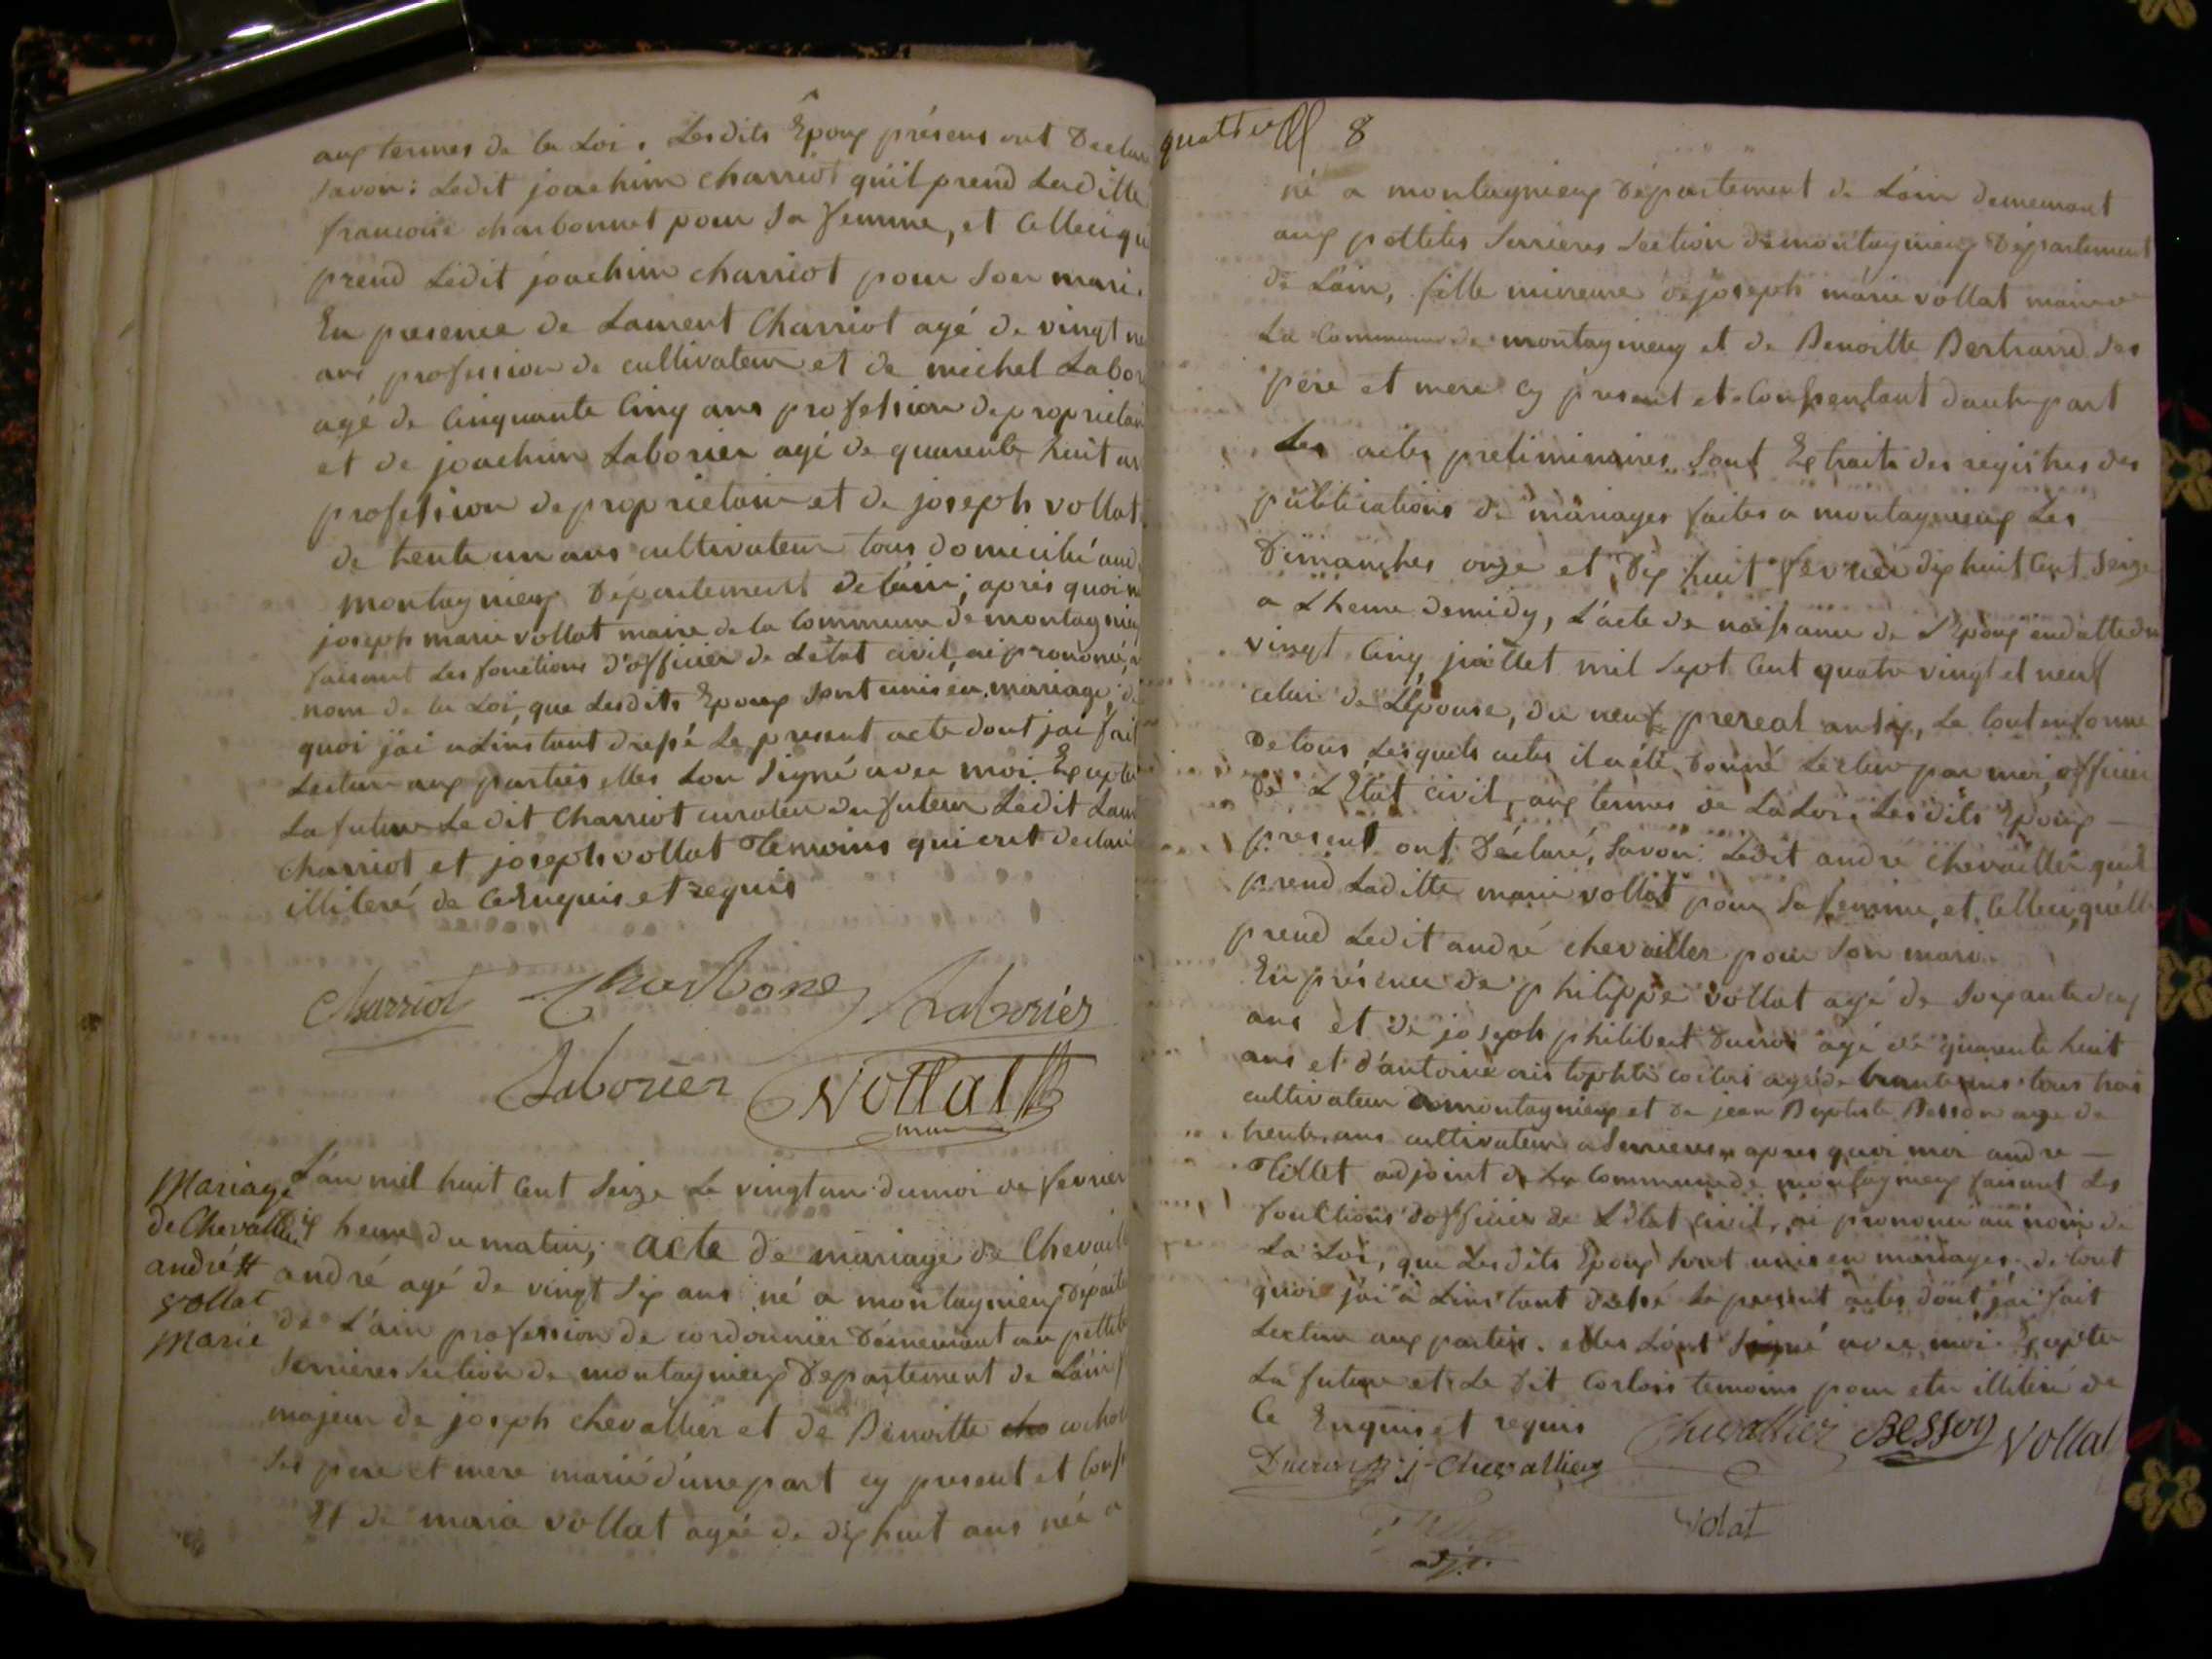 aux termes de la Loi. Lesdits Epoux présens ont Declaré
Savoir: Ledit joachim charriot qu'il prend Laditte
francoise charbonnet pour Sa femme, et Celleci qu
prend Ledit joachim charriot pour Son mari.
En presence de Laurent Charriot agé de vingt ne
ans profession de cultivateur et de michel Labor
agé de Cinquante Cinq ans profession de proprietair
et de joachim Laborier agé de quarente huit an
profession de proprietaire et de joseph vollat
de trente un ans cultivateur tous domicilié aud.
montagnieux Département de lain; après quoi m
joseph marie vollat maire de la Commune de montagnieu
faisant Les fonctions d'officier de Létat civil, ai prononcé a
nom de la Loi, que Lesdits Epoux Sont unis en mariage; de
quoi j'ai a Linstant dressé Le present acte dont jai fait
Lecture aux parties elles Lon Signé avec moi Excepter
La future Le dit Charriot curateur du futeur Ledit Laur
charriot et joseph vollat Temoins qui ont declaré
illiteré de Ce Enquis et requis
Charriot Charbone Laborier
Laborier Vollat
maire
Mariage
de Chevallier
andré et
vollat
Marie
L'an mil huit Cent Seize Le vingt un du moi de fevrier
dix heure du matin, acte de mariage de Chevaill
andré agé de vingt Six ans né a montagnieux Départ
de L'ain profession de cordonnier Demeurant au pettite
Serrieres Section de montagnieux Departement de Lain f
majeur de joseph chevallier et de Benoitte cho cochou
Ses pere et mere marié d'une part cy present et Cons
Et de marie vollat agée de dix huit ans née a
quatre 8
né a montagnieux Département de Lain demeurant
aux pettites Serrieres Section de montagnieux Département
de Lain, fille mineure de joseph marie vollat maire de
La Commune de montagnieux et de Benoitte Bertrand Ses
pere et mere cy present et Consentant dautre part
Les actes preliminaires Sont Extraits des registres des
publications de mariages faites a montagnieux Les
Dimanches onze et Dix huit fevrier dix huit Cent Seize
a Lheure de midy, L'acte de naissance de L'Epoux en datte du
vingt Cinq juillet mil Sept Cent quatre vingt et neuf
celui de Lépouse, du neuf prereal an Six, Le tout en forme
De tous Lesquels actes il a été Donné Lecture par moi, officier
De L'Etat civil, aux termes de La Loi. Lesdits Epoux
present ont Déclaré, Savoir: Ledit andré chevailler quil
prend Laditte marie vollat pour Sa femme, et Celleci, quelle
prend Ledit andré chevailler pour Son mari.
En présence de philippe vollat agé de Soixante deux
ans et de joseph philibert Ducros agé de quarente huit
ans et d'antoine agé de trente ans tous trois
cultivateur a montagnieux et de jean Baptiste Besson age de
trente ans cultivateur a Serrieres, apres quoi moi andre
Tillet adjoint de La Commune de montagnieux faisant Les
fonctions d'officier de Létat civil, ai prononcé au nom de
La Loi, que Lesdits Epoux Sont unis en mariages. de tout
quoi j'ai à Linstant dressé Le present actes dont j'ai fait
Lecture aux parties. elles Lont Signé avec moi Excepter
La future et Le Dit temoins pour etre illiteré de
Ce Enquis et requis
Chevallier Besson Vollat
Ducros j Chevallier
Volat
adjt.